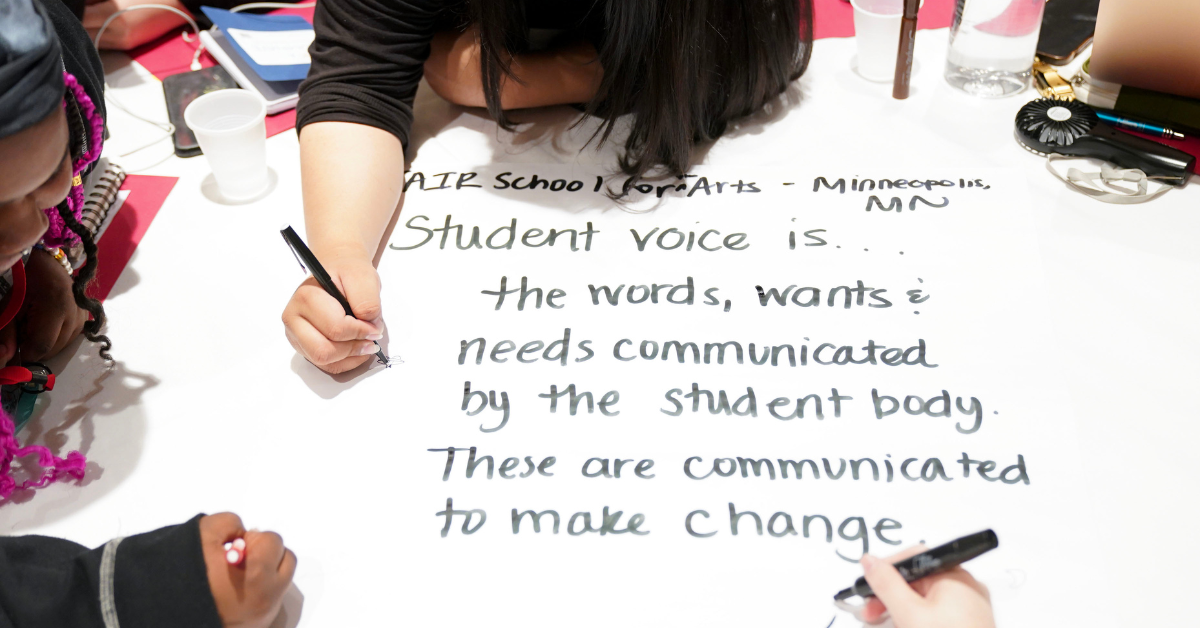 FAIR School for Arts - Minneapolis,
MN
Student voice is. . . .
the words, wants &
needs communicated
by the student body.
These are communicated
to make change.